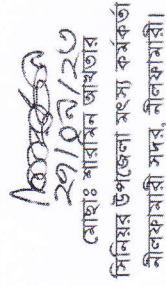 ২৭/০৮/২৩
মোছাঃ শারমিন আখতার
সিনিয়র উপজেলা মৎস্য কর্মকর্তা
নীলফামারী সদর, নীলফামারী।